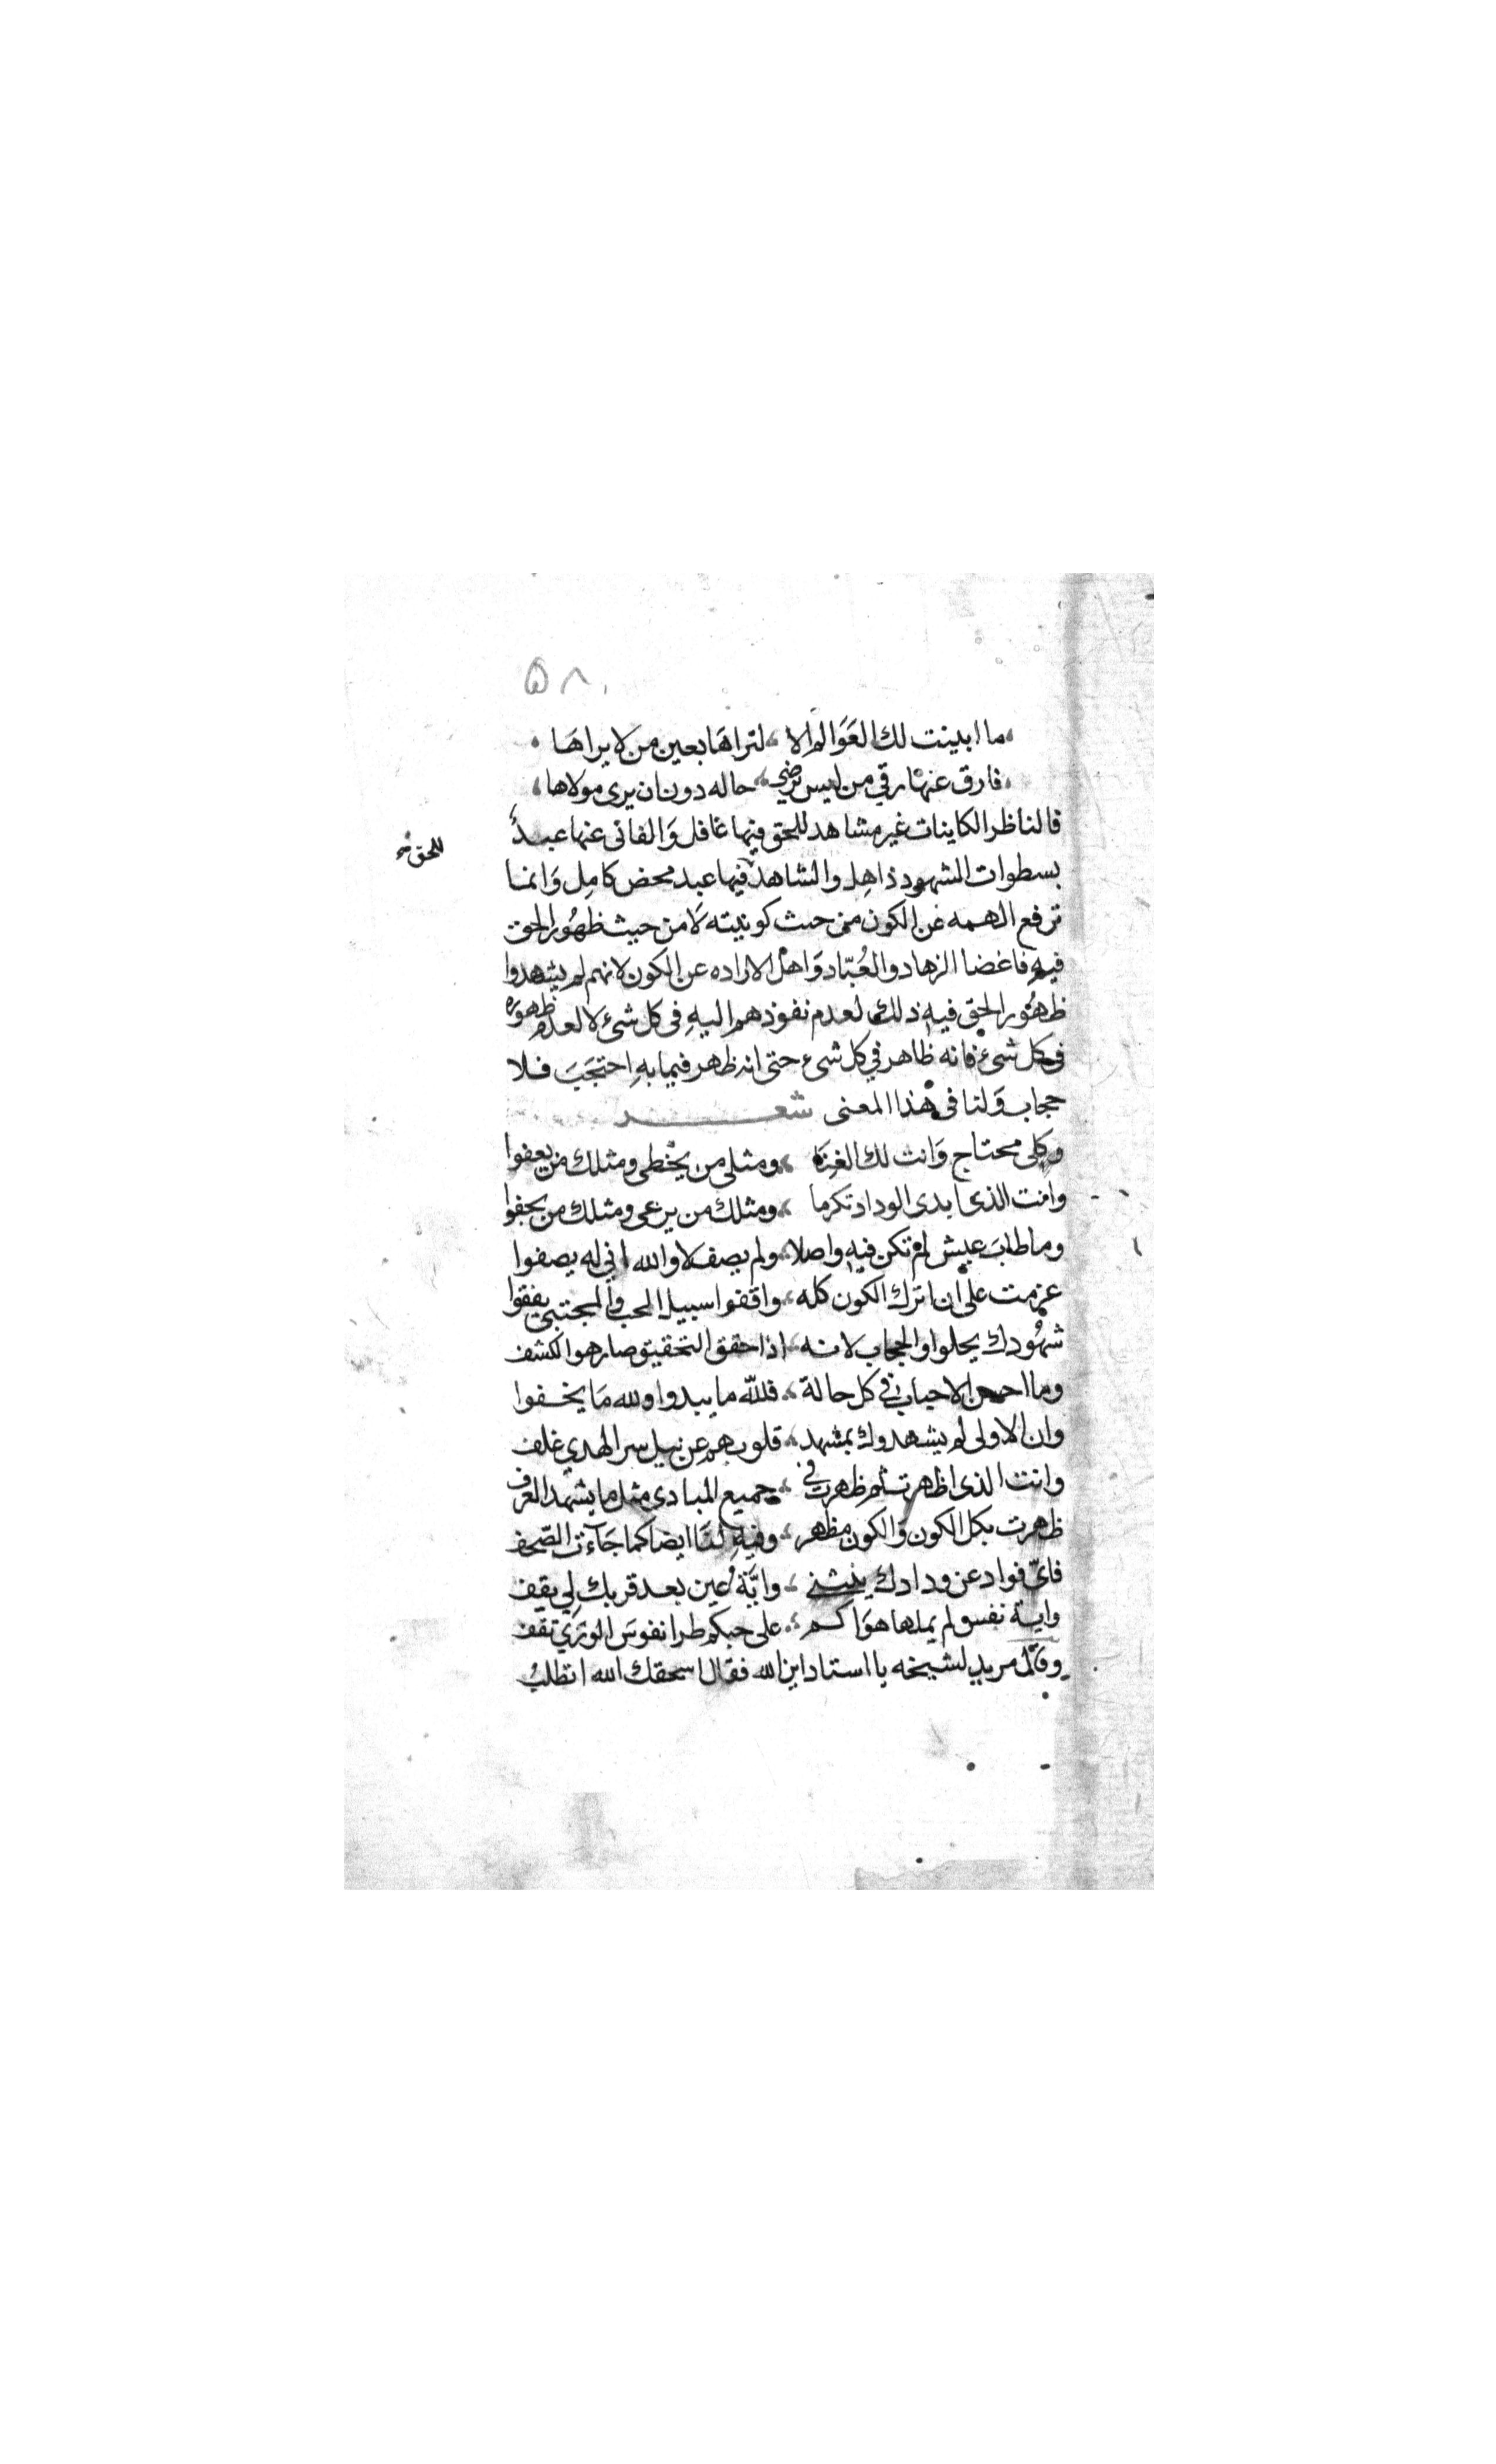 ٥٨
ما ابينت لك العَوَالم الا لتراهَا بعين من لا يراهَا
فارق عنها رقي من ليس يرضي حاله دون ان يرى مولاها
فالناظر الكاينات غير مشاهد للحق فيها غافل وَالفانى عنها عبدٌ
للحق
بسطوات الشهود ذاهل والشاهد فيها عبد محض كامِل وَانمَا
ترفع الهمه عن الكون من حيث كونيته لَا من حيث ظهُور الحق
فيهِ فاغضا الزهاد والعُبّاد وَاهل الاراده عن الكون لانهم لم يشهدوا
ظهُور الحق فيهِ ذلك لعدم نفوذهم اليهِ فى كل شىء لا لعدم ظهوره
فى كل شىء فانه ظاهر في كل شىء حتى انه ظهر فيما بهِ احتجَبَ فلا
حجاب وَلنا فى هذا المعنى شعـر
وكلى محتاج وَانت لك الغِنَا ومثلى من يخطى ومثلك من يعفوا
وانت الذى ابدى الوداد تكرما ومثلك من يرعى ومثلك من يجفوا
وما طابَ عيش لم تكن فيهِ واصلا ولم يصف لا والله انى له يصفوا
عزمت على ان اترك الكون كله واقفوا سبيل الحب والمجتبى يقفوا
شهُودك يحلوا والحجاب لانه اذا حقق التحقيق صار هو الكشف
وما احسن الاحباب في كل حالة فلله ما يبدوا ولله مَا يخفوا
وان الاولى لم يشهدوك بمشهد قلوبهم عن نيل سر الهدي غلف
وانت الذى اظهرت ثم ظهرت في جميع المبادى مثل ما يشهد العرف
ظهرت بكل الكون وَالكون مظهر وفيهِ لنَا ايضا كما جَآءت الصّحف
فاىّ فواد عن ودادك ينثني وايّة عين بعد قربك لي يقف
واية نفس لم يملها هوَاكم على حبكم طرا نفوسَ الورَي تقف
وقال مريد لشيخه يا استاد اين الله فقال اسحقك الله اتطلبُ